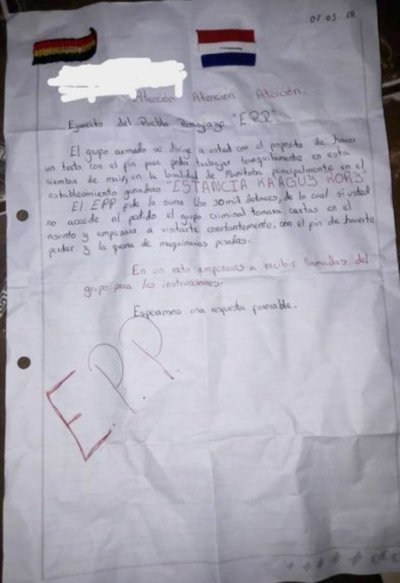 07-03-18
Atención Atención Atención.
Ejercito del Pueblo Paraguayo "EPP"
El grupo armado se dirige a usted con el proposito de hacer
un trato con el fin para poder trabajar tranquilamente en esta
siembra de maiz, en la localidad de Manitoba principalmente en el
establecimiento ganadero "ESTANCIA KAAGUY RORY"
El EPP pide la suma los 30 mil dolares, de lo cual si usted
no accede al pedido el grupo criminal tomara cartas en el
asunto y empesara a visitarte constantemente, con el fin de hacerte
perder y la quema de maquinarias pesadas.
En un rato empesaras a recibir llamadas del
grupo para las instrucciones.
Esperamos una respuesta favorable.
E.P.P.